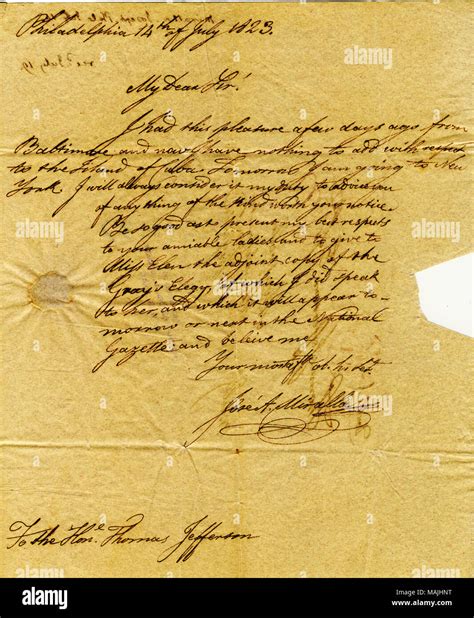 Philadelphia 14th of July 1823.
My Dear Sir
I had this pleasure a few days ago from
Baltimore and now I have nothing to add with respect
to the Island of Cuba. Tomorrow I am going to New
York. I will always consider it my duty to advise you
of any thing of the kind worth your notice.
Be so good as to present my best respects
to your amiable Ladies and to give to
Miss Elen the adjoint copy of the
Gray's Elegy of which I did speak
to her, and which it will appear to-
morrow or next in the National
Gazette: and beleive me
Your most
José A. Miralla
To the Hble. Thomas Jefferson
alamy stock photo
alamy
Image ID: MAJHNT
www.alamy.com